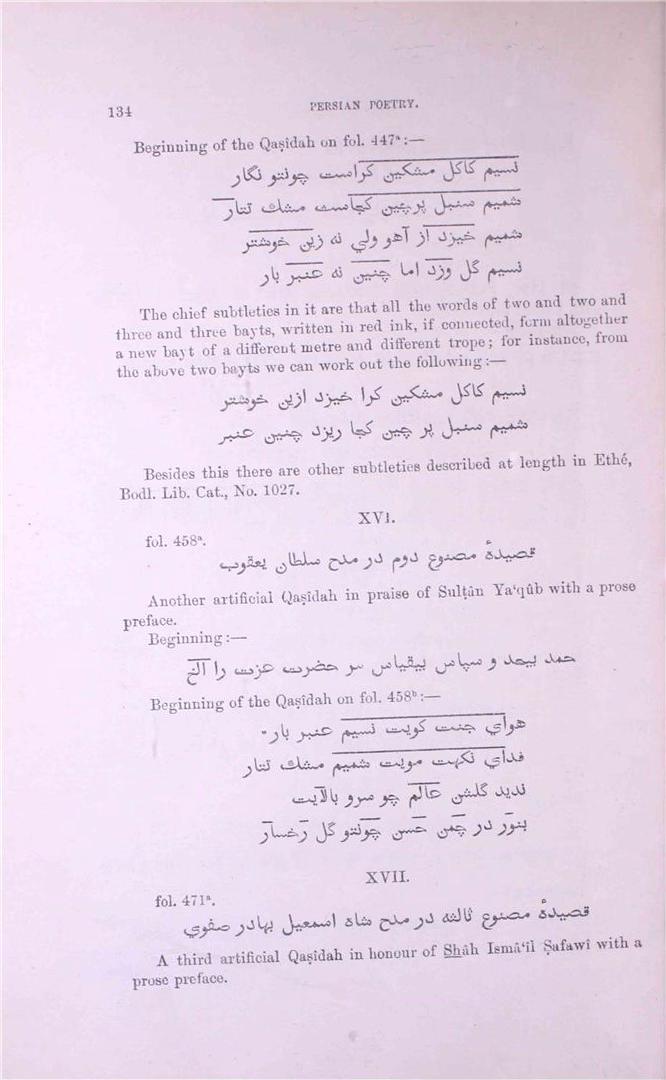 134
PERSIAN POETRY.
Beginning of the Qaṣîdah on fol. 447ᵃ:—
نسيم كاكل مشكين كراست چونتو نگار
شميم سنبل پرچين كجاست مشك تتار
شميم خيزد از آهو ولي نه زين خوشتر
نسيم گل وزد اما چنين نه عنبر بار
The chief subtleties in it are that all the words of two and two and
three and three bayts, written in red ink, if connected, form altogether
a new bayt of a different metre and different trope; for instance, from
the above two bayts we can work out the following:—
نسيم كاكل مشكين كرا خيزد ازين خوشتر
شميم سنبل پر چين كجا ريزد چنين عنبر
Besides this there are other subtleties described at length in Ethé,
Bodl. Lib. Cat., No. 1027.
XVI.
fol. 458ᵃ.
قصيدهٔ مصنوع دوم در مدح سلطان يعقوب
Another artificial Qaṣîdah in praise of Sulṭân Ya‘qûb with a prose
preface.
Beginning:—
حمد بيحد و سپاس بيقياس مر حضرت عزت را الخ
Beginning of the Qaṣîdah on fol. 458ᵇ:—
هواي جنت كويت نسيم عنبر بار
فداي نكهت مويت شميم مشك تتار
نديد گلشن عالم چو سرو بالايت
بنور در چمن حسن چونتو گل رخسار
XVII.
fol. 471ᵃ.
قصيدهٔ مصنوع ثالثه در مدح شاه اسمعيل بهادر صفوي
A third artificial Qaṣîdah in honour of Shâh Ismâ‘îl Ṣafawî with a
prose preface.